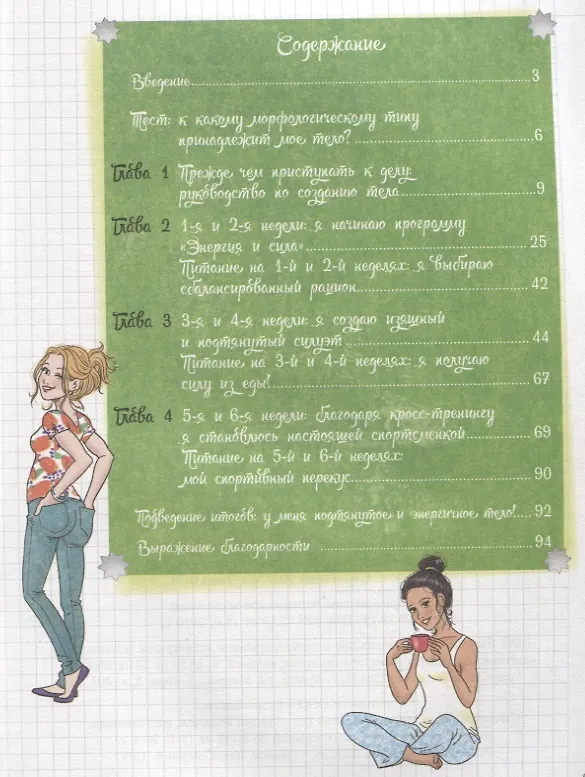 Содержание
Введение 3
Тест: к какому морфологическому типу
принадлежит мое тело? 6
Глава 1 Прежде чем приступать к делу:
руководство по созданию тела 9
Глава 2 1-я и 2-я недели: я начинаю программу
«Энергия и сила» 25
Питание на 1-й и 2-й неделях: я выбираю
сбалансированный рацион 42
Глава 3 3-я и 4-я недели: я создаю изящный
и подтянутый силуэт 44
Питание на 3-й и 4-й неделях: я получаю
силу из еды! 67
Глава 4 5-я и 6-я недели: благодаря кросс-тренингу
я становлюсь настоящей спортсменкой 69
Питание на 5-й и 6-й неделях:
мой спортивный перекус 90
Подведение итогов: у меня подтянутое и энергичное тело! 92
Выражение благодарности 94